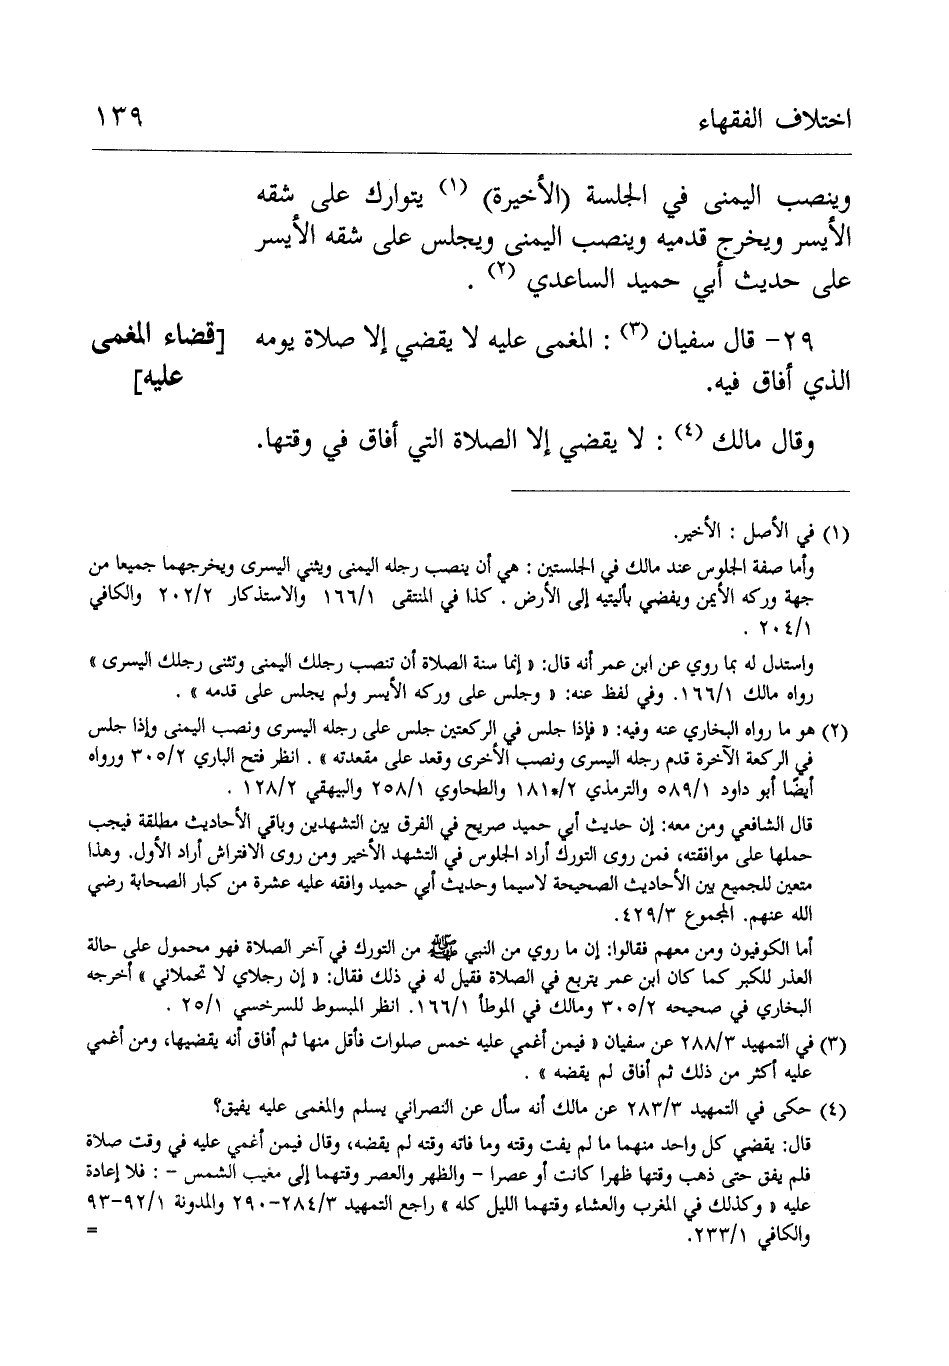 اختلاف الفقهاء ١٣٩
وينصب اليمنى في الجلسة (الأخيرة) (١) يتوارك على شقه
الأيسر ويخرج قدميه وينصب اليمنى ويجلس على شقه الأيسر
على حديث أبي حميد الساعدي (٢) .
٢٩- قال سفيان (٣) : المغمى عليه لا يقضي إلا صلاة يومه [قضاء المغمى
الذي أفاق فيه. عليه]
وقال مالك (٤) : لا يقضي إلا الصلاة التي أفاق في وقتها.
(١) في الأصل : الأخير.
وأما صفة الجلوس عند مالك في الجلستين : هي أن ينصب رجله اليمنى ويثني اليسرى ويخرجهما جميعا من
جهة وركه الأيمن ويفضي بأليتيه إلى الأرض . كذا في المنتقى ١٦٦/١ والاستذكار ٢٠٢/٢ والكافي
٢٠٤/١ .
واستدل له بما روي عن ابن عمر أنه قال: « إنما سنة الصلاة أن تنصب رجلك اليمنى وتثنى رجلك اليسرى »
رواه مالك ١٦٦/١. وفي لفظ عنه: « وجلس على وركه الأيسر ولم يجلس على قدمه » .
(٢) هو ما رواه البخاري عنه وفيه: « فإذا جلس في الركعتين جلس على رجله اليسرى ونصب اليمنى وإذا جلس
في الركعة الآخرة قدم رجله اليسرى ونصب الأخرى وقعد على مقعدته » . انظر فتح الباري ٣٠٥/٢ ورواه
أيضًا أبو داود ٥٨٩/١ والترمذي ١٨١*/٢ والطحاوي ٢٥٨/١ والبيهقي ١٢٨/٢ .
قال الشافعي ومن معه: إن حديث أبي حميد صريح في الفرق بين التشهدين وباقي الأحاديث مطلقة فيجب
حملها على موافقته، فمن روى التورك أراد الجلوس في التشهد الأخير ومن روى الافتراش أراد الأول. وهذا
متعين للجميع بين الأحاديث الصحيحة لاسيما وحديث أبي حميد وافقه عليه عشرة من كبار الصحابة رضي
الله عنهم. المجموع ٤٢٩/٣.
أما الكوفيون ومن معهم فقالوا: إن ما روي من النبي ﷺ من التورك في آخر الصلاة فهو محمول على حالة
العذر للكبر كما كان ابن عمر يتربع في الصلاة فقيل له في ذلك فقال: « إن رجلاي لا تحملاني » أخرجه
البخاري في صحيحه ٣٠٥/٢ ومالك في الموطأ ١٦٦/١. انظر المبسوط للسرخسي ٢٥/١ .
(٣) في التمهيد ٢٨٨/٣ عن سفيان « فيمن أغمي عليه خمس صلوات فأقل منها ثم أفاق أنه يقضيها، ومن أغمي
عليه أكثر من ذلك ثم أفاق لم يقضه » .
(٤) حكى في التمهيد ٢٨٣/٣ عن مالك أنه سأل عن النصراني يسلم والمغمى عليه يفيق؟
قال: يقضي كل واحد منهما ما لم يفت وقته وما فاته وقته لم يقضه، وقال فيمن أغمي عليه في وقت صلاة
فلم يفق حتى ذهب وقتها ظهرا كانت أو عصرا - والظهر والعصر وقتهما إلى مغيب الشمس - : فلا إعادة
عليه « وكذلك في المغرب والعشاء وقتهما الليل كله » راجع التمهيد ٢٨٤/٣-٢٩٠ والمدونة ٩٢/١-٩٣
والكافي ٢٣٣/١. =